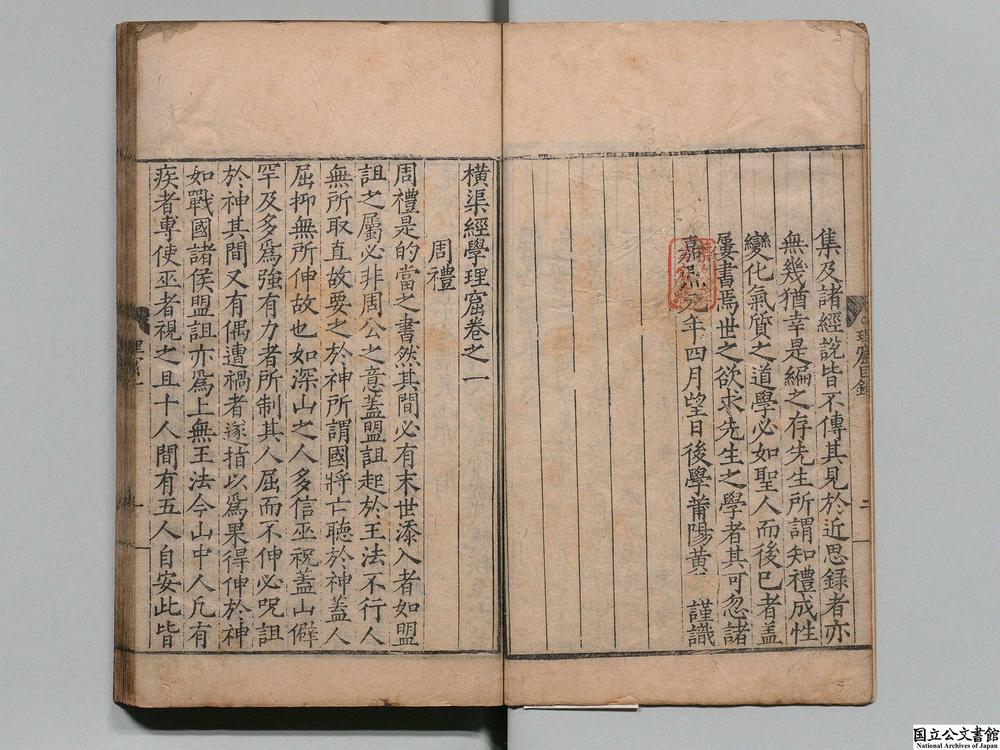 集及諸經說皆不傳其見於近思録者亦
無幾猶幸是編之存先生所謂知禮成性
變化氣質之道學必如聖人而後已者蓋
屢書焉世之欲求先生之學者其可忽諸
嘉熙元年四月望日後學莆陽黃 謹識
理窟目錄
二
橫渠經學理窟卷之一
周禮
周禮是的當之書然其間必有末世添入者如盟
詛之屬必非周公之意蓋盟詛起於王法不行人
無所取直故要之於神所謂國將亡聽於神蓋人
屈抑無所伸故也如深山之人多信巫祝蓋山僻
罕及多爲強有力者所制其人屈而不伸必呪詛
於神其間又有偶遭禍者遂指以爲果得伸於神
如戰國諸侯盟詛亦爲上無王法今山中人凡有
疾者專使巫者視之且十人間有五人自安此皆
国立公文書館
National Archives of Japan